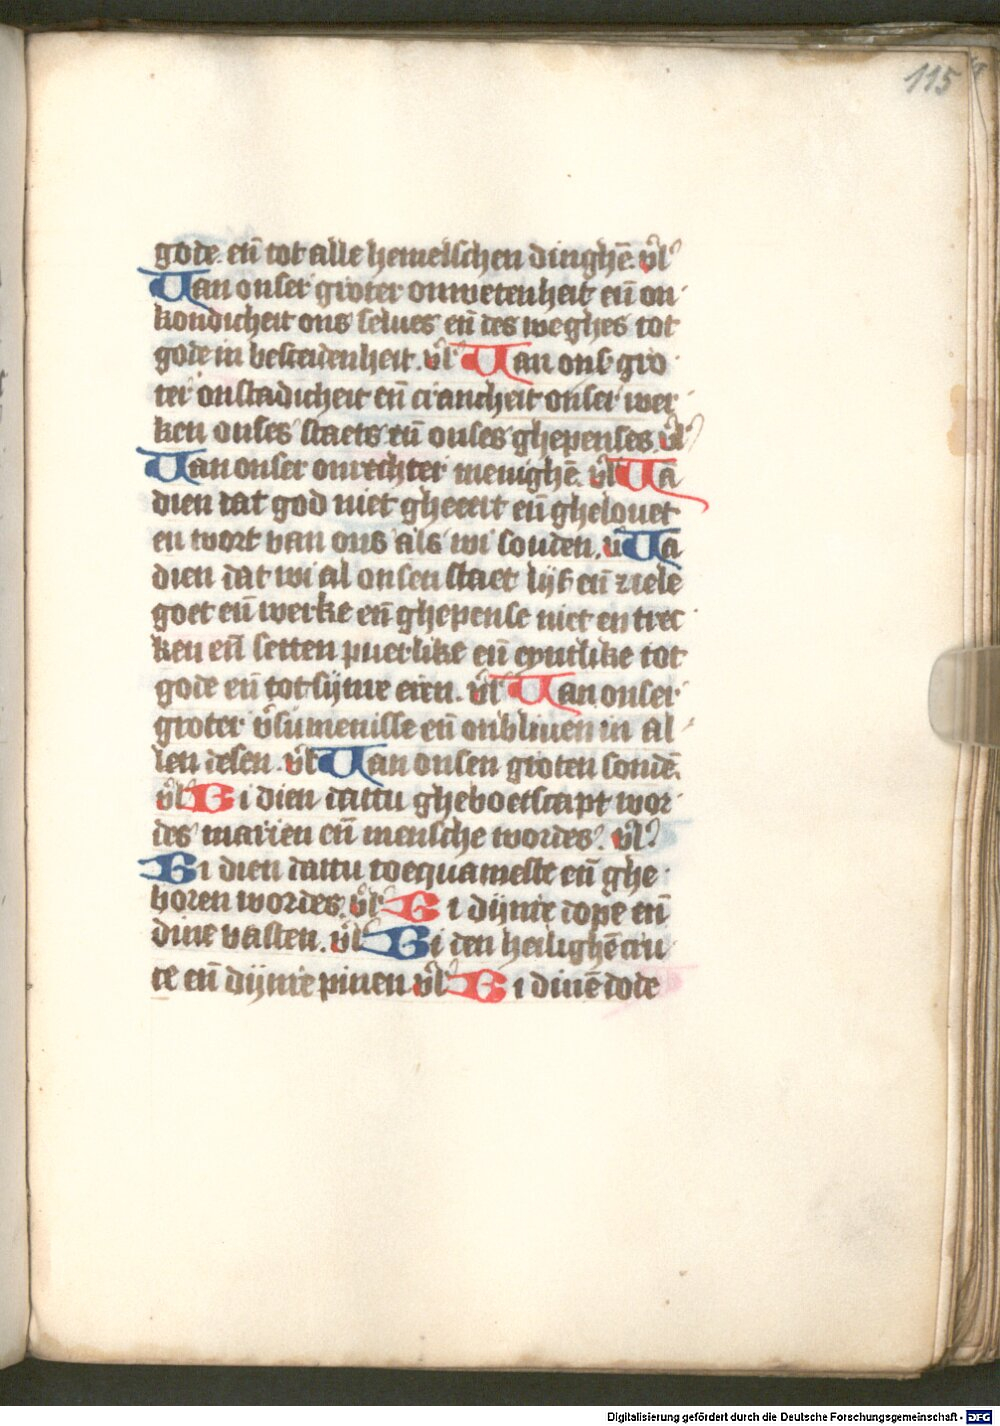 115
gode. en̄ tot alle hemelschen dinghē. v̾l
Uan onser groter onwetenheit en̄ on
kondicheit ons selues en̄ des weghes tot
gode in besceidenheit. v̾l Uan ons̾ gro
ter onstadicheit en̄ crancheit onser wer
ken onses staets en̄ onses ghepenses. v̾l
Uan onser onrechter menighē. v̾l Ua
dien dat god niet gheeert en̄ ghelouet
en wort van ons als wi souden. v̾ Ua
dien dat wi al onsen staet lijf en̄ ziele
goet en̄ werke en̄ ghepense niet en trec
ken en̄ setten puerlike en̄ eyntlike tot
gode en̄ tot sijnre eren. v̾l Uan onser
groter v̾sumenisse en̄ onbliuen in al
len desen. v̾l Uan onsen groten sondē.
v̾l Bi dien dattu gheboetscapt wor
des marien en̄ mensche wordes. v̾l
Bi dien dattu toequameste en̄ ghe
boren wordes. v̾l Bi dijnre dope en̄
dine vasten. v̾l Bi den heilighē cru
ce en̄ dijnre pinen v̾l Bi dinē dode
Digitalisierung gefördert durch die Deutsche Forschungsgemeinschaft - DFG